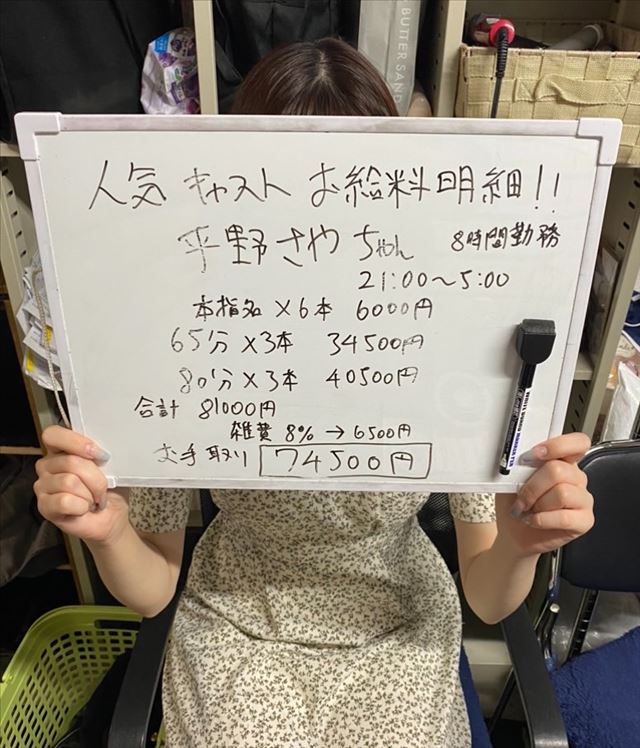 BUTTER SAND
人気 キャスト お給料明細!!
平野さやちゃん 8時間勤務
21:00〜5:00
本指名×6本 6000円
65分×3本 34500円
80分×3本 40500円
合計 81000円
雑費 8% → 6500円
お手取り 74500円